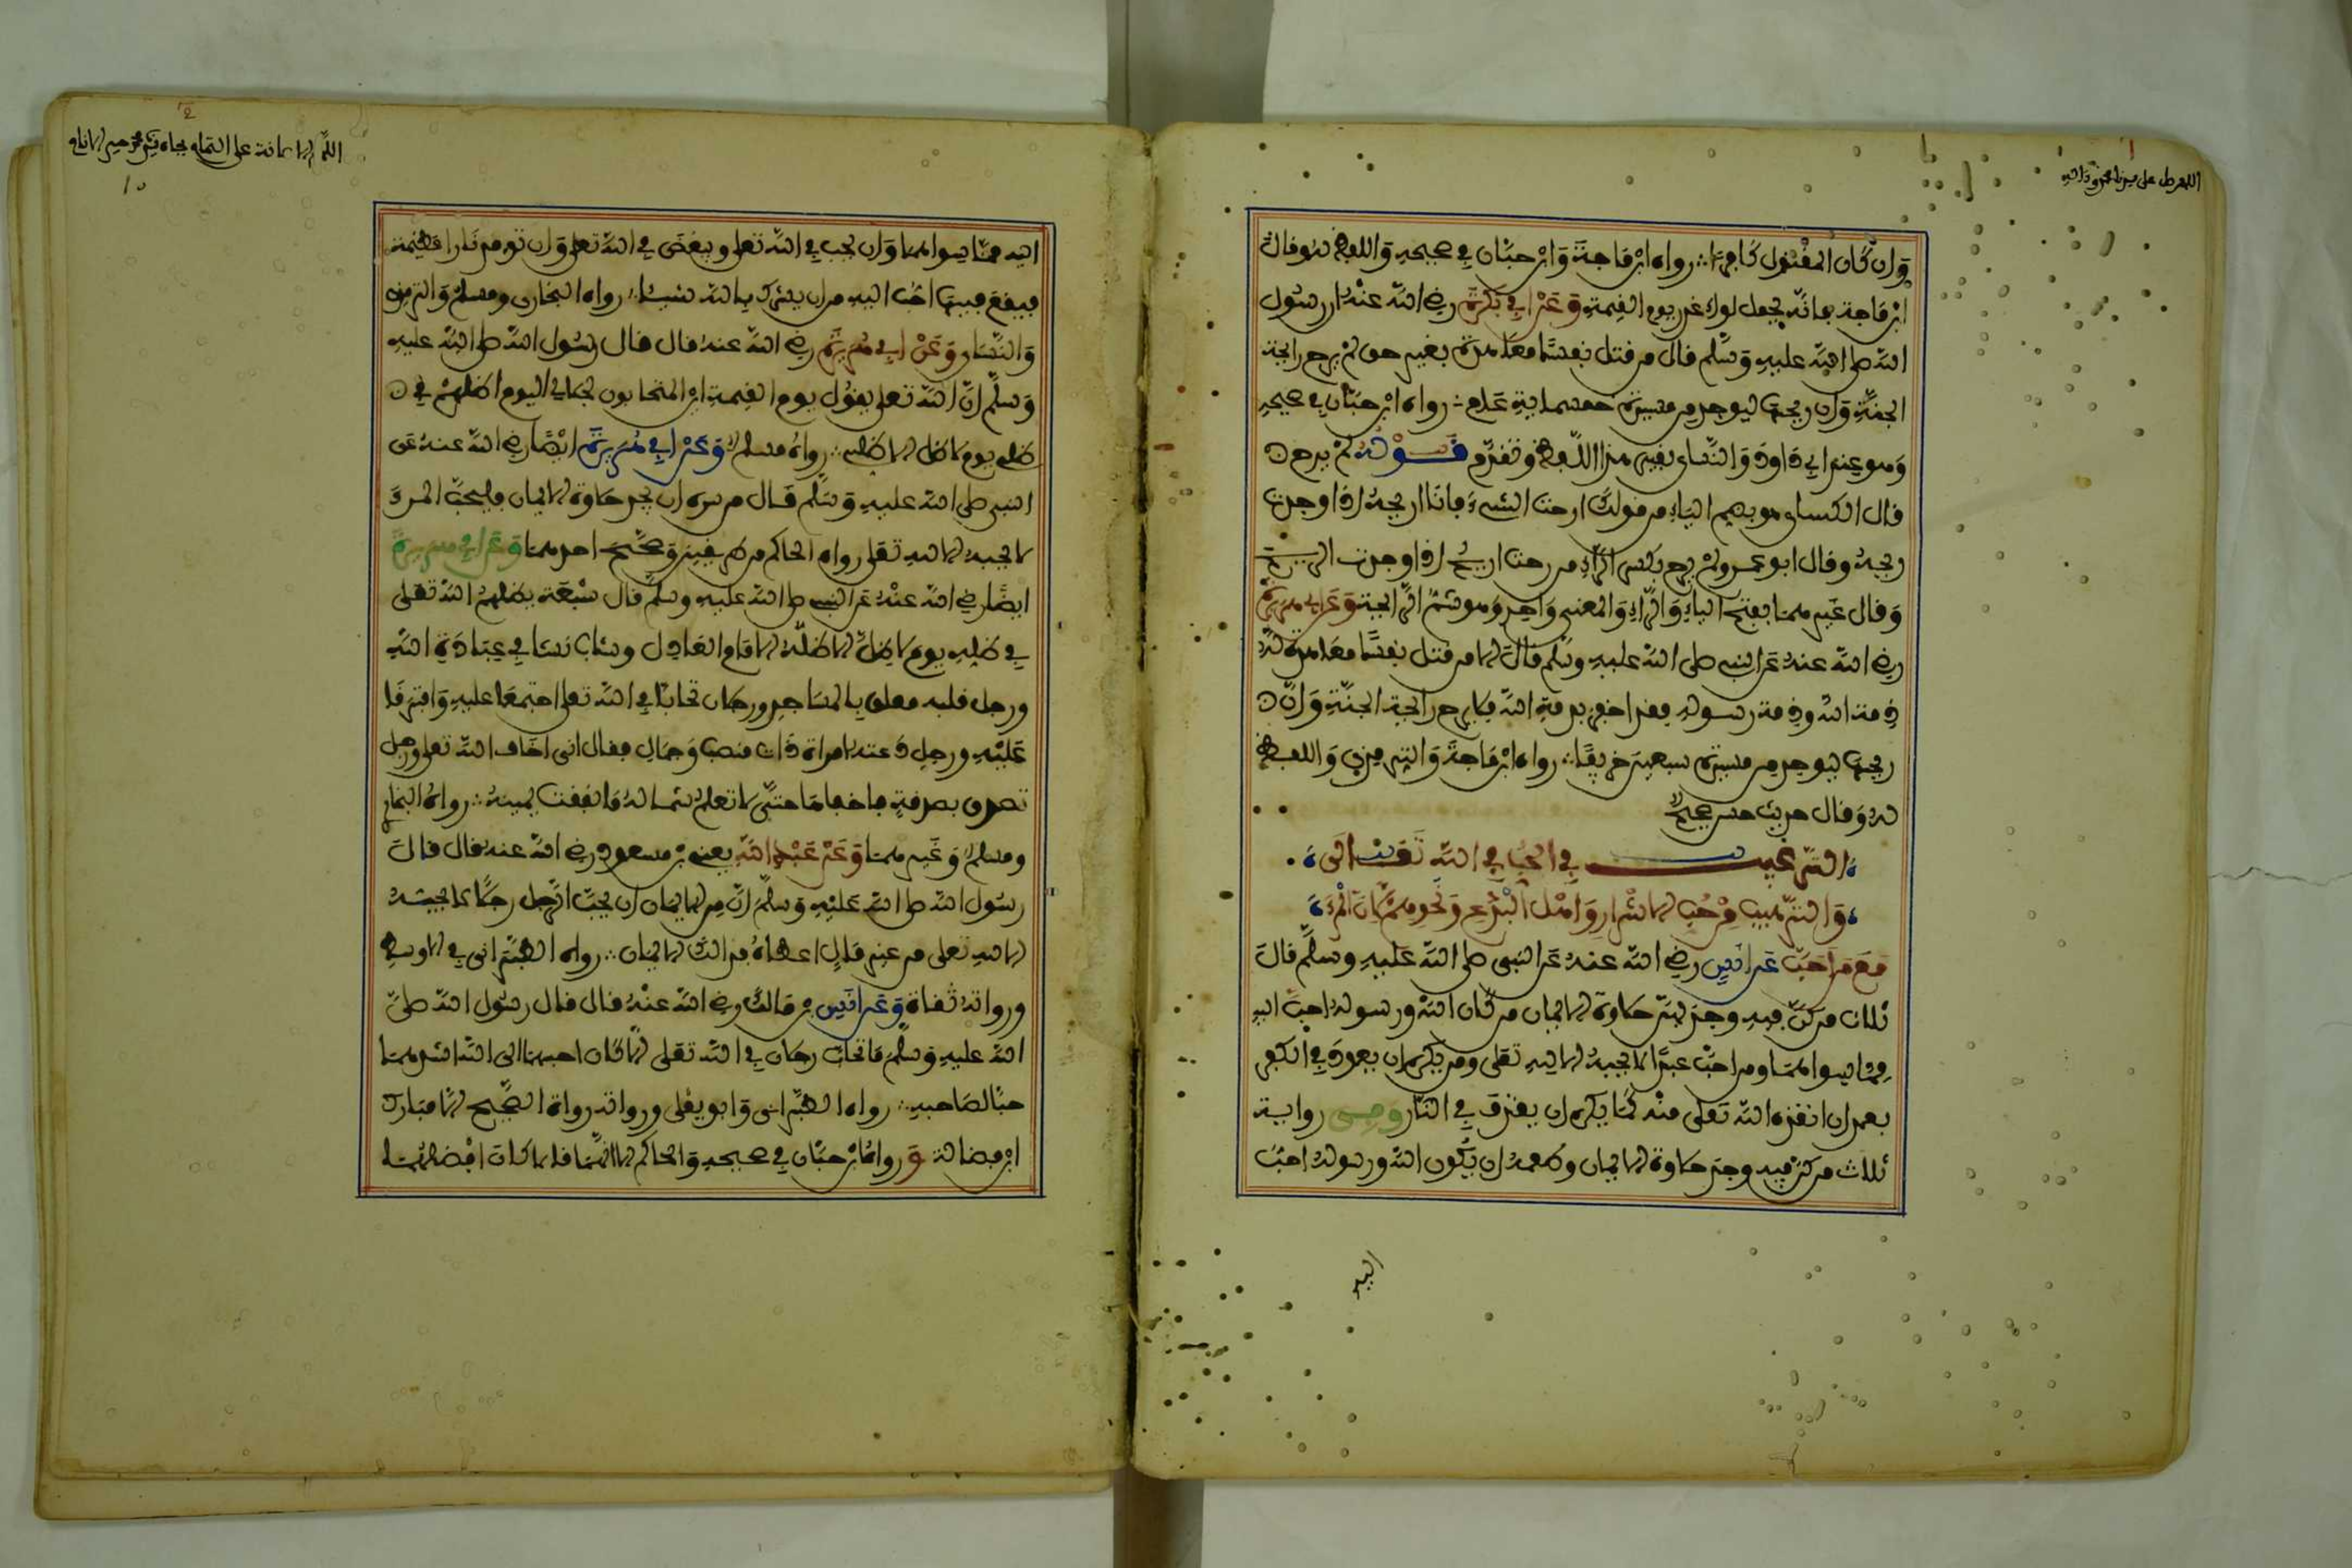 اللهم صل على سيدنا محمد وءاله
وَإن كَان المقتول كَافرًا؞ رواه ابْن مَاجَةَ وَابْن حبَّان في صحيحه وَاللفظ له وقال
ابْن مَاجة فإنّه يحمل لواءَ غدر يوم القيمة وَعَنْ أبي بَكرَةَ رضي الله عنْهُ أن رسُول
الله صلى الله عليهِ وَسَلم قال من قتل نفسًا معاهدة بغير حق لمْ يرح رائحة
الجنَّةِ وَإن ريحَهَا ليوجد من مسيرة خمسمائةِ عَام؞ رواه ابْن حبَّان في صحيحهِ
وَهو عند أبي دَاودَ وَالنَّسائي بغير هذا اللَّفظ وتقدَّم قَـــوْلُهُ لمْ يرح
قال الكسائي هو بضم اليَاءِ من قولكَ أرحت الشيءَ فأنَا أريحهُ إذَا وجدت
ريحهُ وقال أبو عمرو لمْ يرِح بكسر الرَّاءِ من رحت أريحُ إذا وجدت الريح
وَقال غَيرهما بفتح اليَاءِ وَالرَّاءِ وَالمعنى وَاحد وَهو شَمُّ الرَّائحة وَعَن أبي هريرةَ
رضي الله عنهُ عَن النبي صلى الله عليه وسَلم قَالَ ألا من قتل نفسًا معَاهدة لهُ
ذمة الله وذمة رسوله فقد أخفر بذمةِ الله فلا يرح رَائحة الجنَّةِ وَإنَّ
ريحَهَا ليوجد من مسيرة سبعينَ خريفًا؞ رواه ابْن مَاجَةَ وَالترمذي وَاللفظ
لهُ وَقال حديث حسن صحيحٌ
الترغيب في الحُبِّ في الله تَعَالَى
وَالترهيب مِنْ حُبِّ الأشْرارِ وَأهْل الْبِدَعِ وَنَحْوِهِمْ لأنَّ الْمَرْءَ
مَعَ مَن أحَبَّ عَن أنَسٍ رضي الله عنهُ عَن النبي صلى الله عَليهِ وسلَّم قالَ
ثلاث من كنَّ فيهِ وجدَ بهنَّ حلاوةَ الإيمان من كَان الله ورسوله أحبَّ إليه
مِمَّا سواهمَا ومن أحبَّ عبدًا لا يحبهُ إلا لله تعلى ومن يكره أن يعودَ في الكفر
بعد أن أنقذه الله تَعلى منْه كمَا يكره أن يقذف في النَّار وَفِي رواية
ثلاث من كنَّ فيه وجد حلاوة الإيمان وطعمهُ أن يَكُون الله ورسوله أحبّ
إليه
اللهم الإعانة على التمام بجاه سيدنا محمد خير الأنام
إليه ممَّا سواهمَا وَأن يحب في الله تعلى ويبغضَ في الله تعلى وَأن توقد نَار عظيمة
فيقع فيهَا أحَب إليهِ من أن يشرك بالله شيئًا؞ رواه البخاري ومسلم وَالترمذي
وَالنَّسَائي وَعَنْ أبي هُرَيرَةَ رضي الله عنهُ قال قال رسُول الله صلى الله عليهِ
وَسَلَّم إنَّ الله تَعلى يقُول يوم القيمةِ أين المتحَابون بجلالي اليوم أظلهُمْ في
ظلي يوم لا ظل إلا ظلي؞ روَاهُ مسلمٌ وَعَنْ أبي هُرَيرَةَ أيْضًا رضي الله عنهُ عَن
النبي صلى الله عليهِ وَسَلَّم قَـال من سره أن يجد حلاوة الإيمان فليحبَّ المرءَ
لا يحبهُ إلا لله تعلى رواه الحاكم من طريقينِ وَصحَّحَ أحدهما وَعَن أبي هريرةَ
أيضًا رضي الله عنْهُ عَن النبي صلى الله عليهِ وسلم قَال سَبْعَة يظلهُمُ الله تعلى
في ظله يوم لا ظلَّ إلا ظلّه الإمَام العَادِل وشابّ نشَأ في عِبَادَةِ اللهِ
ورجل قلبه معلق بالمسَاجدِ ورجلان تحَابَّا في الله تعلى اجتمعَا عليهِ وَافترقَا
عَليْهِ ورجل دَعته امرأة ذَات منصب وَجَمَالٍ فقال إني أخَاف الله تعلى ورجل
تصدق بصدقةٍ فأخفاهَا حتَّى لا تعلمَ شمَـالهُ مَا تنفق يمينهُ؞ رواهُ البخاري
ومسلمٌ وَغَيرهما وَعَنْ عَبْدِ اللهِ يعني بْن مسعودٍ رضي الله عنه قال قالَ
رسُول الله صلى الله عَليْهِ وَسلمَّ إنَّ من الإيمان أن يحبَّ الرَّجل رجلًا لا يحبهُ
إلا للهِ تعلى من غير مَالٍ أعطاهُ فذلك الإيمَان؞ رواه الطبَرَاني في الأوسط
ورواتهُ ثقاة وَعَن أنَسِ بْن مَالكٍ رضي الله عنْهُ قال قال رسُول الله صلىَّ
الله عليهِ وَسلمَّ مَا تحَابَّ رجلان في الله تعَلى إلاَّ كَان أحبهمَا إلى الله أشدهمَا
حبًّا لصَاحبهِ؞ رواه الطبَراني وَأبو يعْلى ورواته رواة الصَّحيح إلاَّ مبَارك
ابن فضَالة وَرواهُ ابْن حبَّان في صحيحهِ وَالحاكم إلا أنهمَا قالا كَان أفْضلهُمَـا